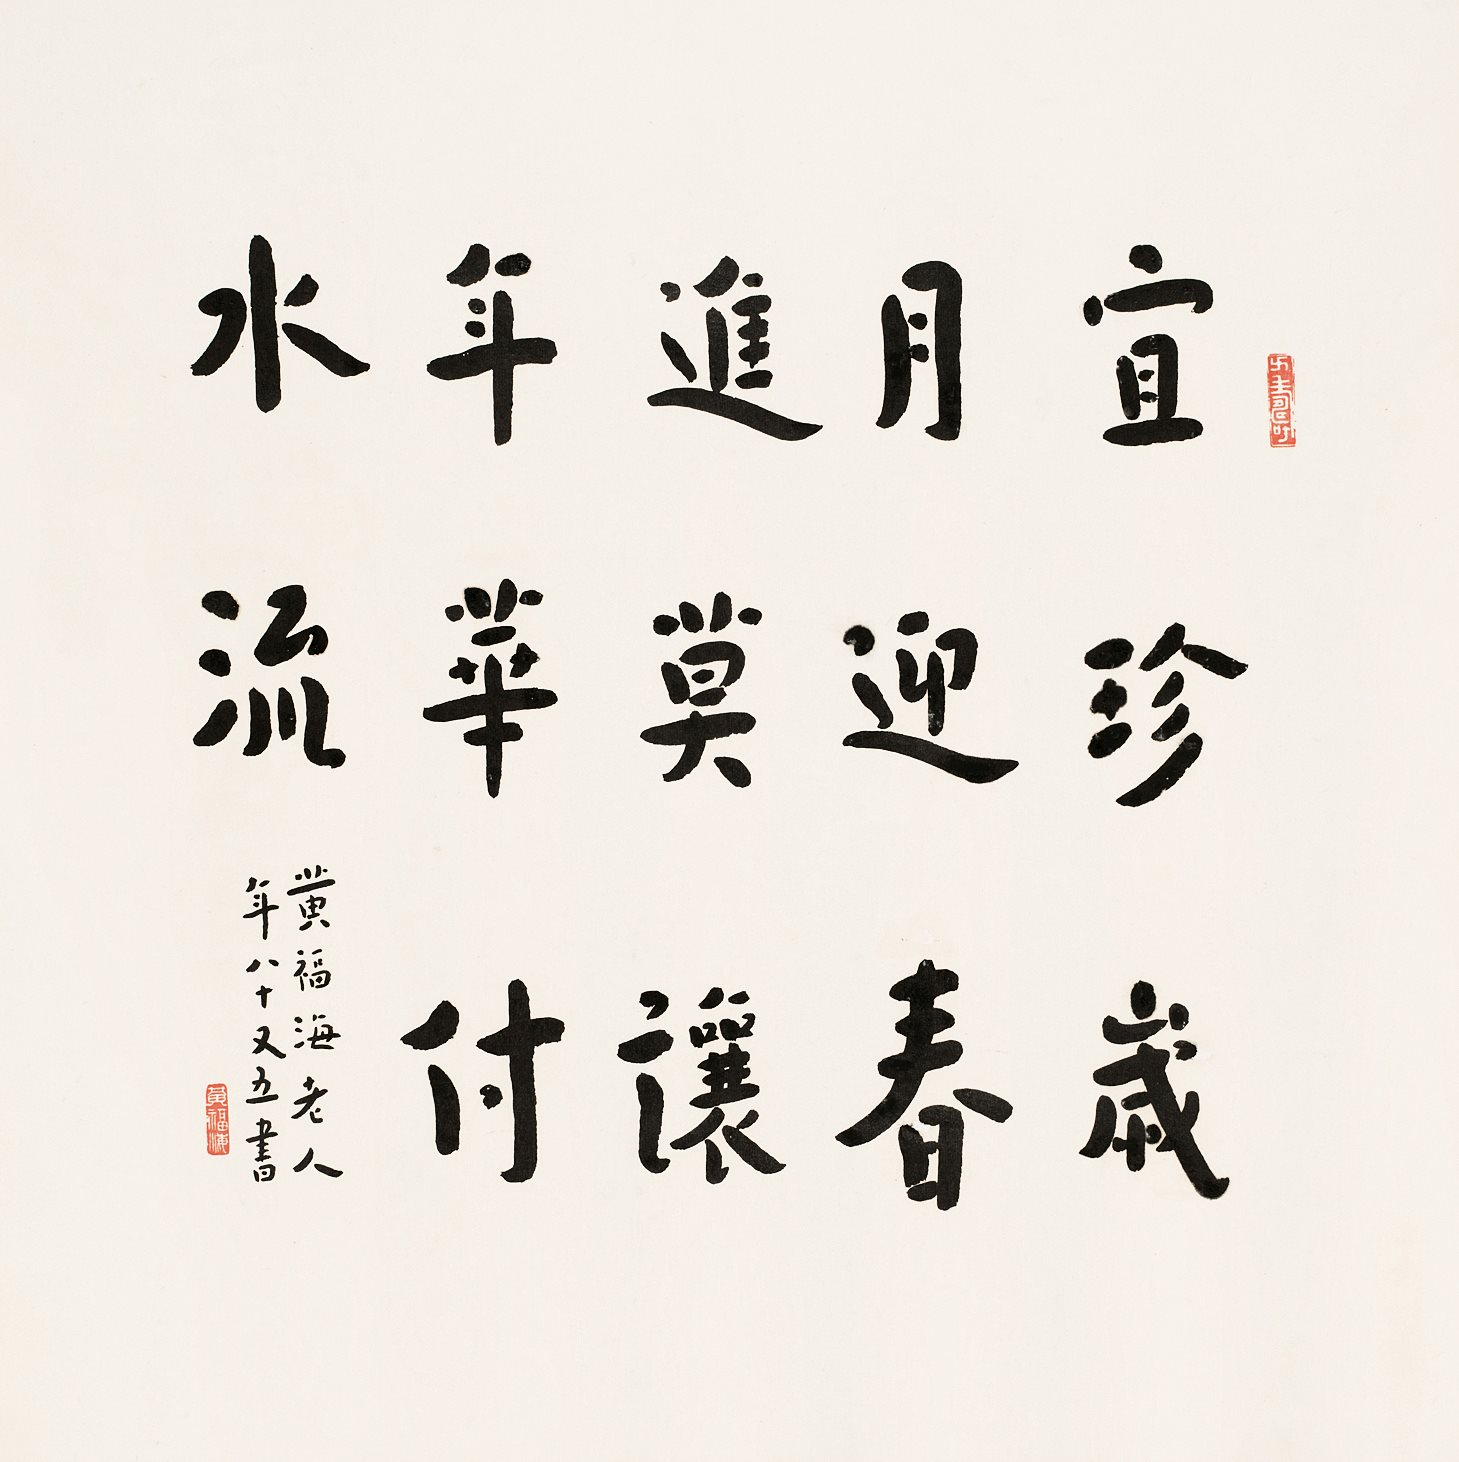 宜珍歲
月迎春
進莫讓
年華付
水流
黄福海老人
年八十又五書
黄福海